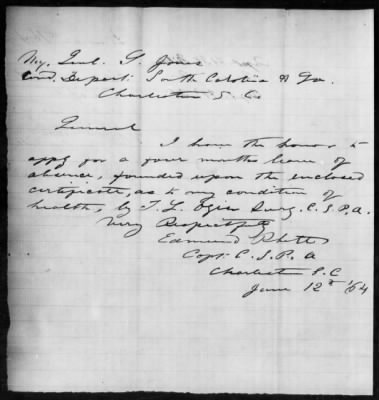 Maj. Genl. S. Jones
Com. Depart. South Carolina & Ga.
Charleston S. C.
General
I have the honor to
apply for a four months leave of
absence, founded upon the enclosed
certificate, as to my condition of
health, by T. L. Ogier Surg. C. S. P. A.
Very Respectfully
Edmund Rhett
Capt. C. S. P. A
Charleston S. C
June 12th '64